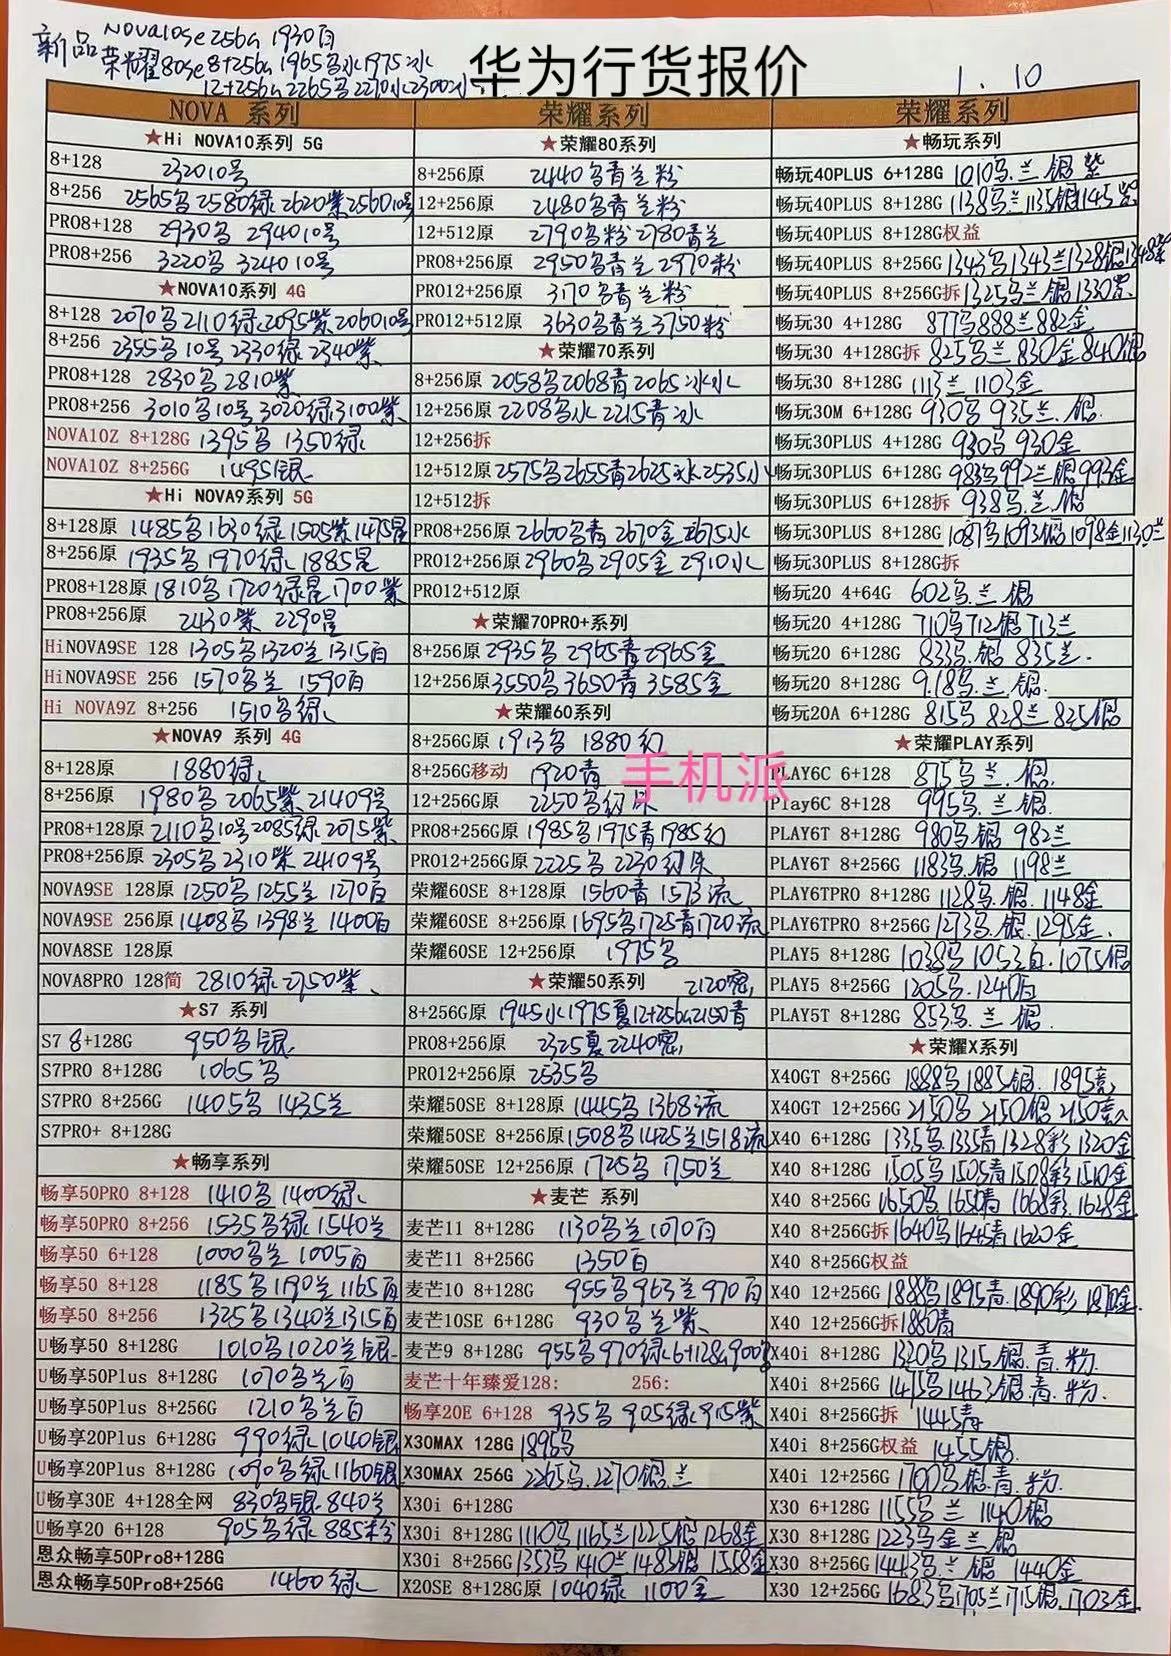 新品 NOVA10se 256G 1930白
荣耀80se 8+256G 1965乌水1975冰
12+256G 2265乌2270水2300冰
华为行货报价
1.10
NOVA 系列
★Hi NOVA10系列 5G
8+128 2320 10号
8+256 2565乌2580绿2620紫2560 10号
PRO8+128 2930乌 2940 10号
PRO8+256 3220乌 3240 10号
★NOVA10系列 4G
8+128 2070乌2110绿2095紫2060 10号
8+256 2355乌10号 2330绿2340紫
PRO8+128 2830乌2810紫
PRO8+256 3010乌10号 3020绿3100紫
NOVA10Z 8+128G 1395乌 1350绿
NOVA10Z 8+256G 1495银
★Hi NOVA9系列 5G
8+128原 1485乌1630绿1505紫1475星
8+256原 1935乌1970绿1885星
PRO8+128原 1810乌1720绿星1700紫
PRO8+256原 2430紫 2290星
HiNOVA9SE 128 1305乌1320兰1315白
HiNOVA9SE 256 1570乌兰 1590白
Hi NOVA9Z 8+256 1510乌绿
★NOVA9 系列 4G
8+128原 1880绿
8+256原 1980乌2065紫2140 9号
PRO8+128原 2110乌10号2085绿2075紫
PRO8+256原 2305乌2310紫2410 9号
NOVA9SE 128原 1250乌1255兰1270白
NOVA9SE 256原 1408乌1398兰1400白
NOVA8SE 128原
NOVA8PRO 128简 2810绿2750紫
★S7 系列
S7 8+128G 950乌银
S7PRO 8+128G 1065乌
S7PRO 8+256G 1405乌1435兰
S7PRO+ 8+128G
★畅享系列
畅享50PRO 8+128 1410乌1400绿
畅享50PRO 8+256 1535乌绿1540兰
畅享50 6+128 1000乌兰 1005白
畅享50 8+128 1185乌1190兰1165白
畅享50 8+256 1325乌1340兰1315白
U畅享50 8+128G 1010乌1020兰银
U畅享50Plus 8+128G 1070乌兰白
U畅享50Plus 8+256G 1210乌兰白
U畅享20Plus 6+128G 990绿1040银
U畅享20Plus 8+128G 1090乌绿1160银
U畅享30E 4+128全网 830乌银840兰
U畅享20 6+128 905乌绿885粉
恩众畅享50Pro8+128G
恩众畅享50Pro8+256G 1460绿
荣耀系列
★荣耀80系列
8+256原 2440乌青兰粉
12+256原 2480乌青兰粉
12+512原 2790乌粉2780青兰
PRO8+256原 2950乌青兰2970粉
PRO12+256原 3170乌青兰粉
PRO12+512原 3630乌青兰3750粉
★荣耀70系列
8+256原 2058乌2068青2065冰水
12+256原 2208乌水2215青冰
12+256拆
12+512原 2575乌2655青2625冰2535水
12+512拆
PRO8+256原 2660乌青2670金2675水
PRO12+256原 2960乌2905金2910水
PRO12+512原
★荣耀70PRO+系列
8+256原 2935乌2965青2965金
12+256原 3550乌3650青3585金
★荣耀60系列
8+256G原 1913乌 1880幻
8+256G移动 1920青
12+256G原 2250乌幻
PRO8+256G原 1985乌1975青1985幻
PRO12+256G原 2225乌 2230幻朱
荣耀60SE 8+128原 1560青1573流
荣耀60SE 8+256原 1695乌1725青1720流
荣耀60SE 12+256原 1975乌
★荣耀50系列 2120密
8+256G原 1945水1975夏12+256G2150青
PRO8+256原 2325夏2240密
PRO12+256原 2535乌
荣耀50SE 8+128原 1445乌1368流
荣耀50SE 8+256原 1508乌1425兰1518流
荣耀50SE 12+256原 1725乌 1750兰
★麦芒 系列
麦芒11 8+128G 1130乌兰1070白
麦芒11 8+256G 1350白
麦芒10 8+128G 955乌963兰970白
麦芒10SE 6+128G 930乌兰紫
麦芒9 8+128G 955乌970绿6+128G900乌
麦芒十年臻爱128: 256:
畅享20E 6+128 935乌 905绿915紫
X30MAX 128G 1895乌
X30MAX 256G 2265乌.2270银.兰
X30i 6+128G
X30i 8+128G 1110乌1165兰1225银1268金
X30i 8+256G 1353乌1410兰1485银1558金
X20SE 8+128G原 1040绿 1100金
荣耀系列
★畅玩系列
畅玩40PLUS 6+128G 1010乌.兰.银紫
畅玩40PLUS 8+128G 1138乌兰1135银1145紫
畅玩40PLUS 8+128G权益
畅玩40PLUS 8+256G 1343乌1343兰1328银1348紫
畅玩40PLUS 8+256G拆 1325乌兰银1330紫
畅玩30 4+128G 877乌888兰882金
畅玩30 4+128G拆 825乌兰830金840银
畅玩30 8+128G 1113兰 1103金
畅玩30M 6+128G 930乌935兰.银
畅玩30PLUS 4+128G 930乌930金
畅玩30PLUS 6+128G 983乌992兰银993金
畅玩30PLUS 6+128拆 938乌.兰.银
畅玩30PLUS 8+128G 1087乌1093银1098金1130兰
畅玩30PLUS 8+128G拆
畅玩20 4+64G 602乌.兰.银
畅玩20 4+128G 710乌712银713兰
畅玩20 6+128G 833乌.银 835兰.
畅玩20 8+128G 918乌.兰.银.
畅玩20A 6+128G 815乌 828兰 825银
★荣耀PLAY系列
PLAY6C 6+128 875乌兰.银.
Play6C 8+128 995乌.兰.银
PLAY6T 8+128G 980乌.银 982兰
PLAY6T 8+256G 1183乌.银 1198兰
PLAY6TPRO 8+128G 1128乌.银.1148金
PLAY6TPRO 8+256G 1273乌.银.1295金.
PLAY5 8+128G 1038乌1053白.1075银
PLAY5 8+256G 1205乌.1240白
PLAY5T 8+128G 853乌.兰.银.
★荣耀X系列
X40GT 8+256G 1888乌1885银.1895竞
X40GT 12+256G 2150乌2150银2150竞
X40 6+128G 1335乌1335青1328彩1320金
X40 8+128G 1505乌1505青1508彩1510金
X40 8+256G 1650乌1650青1668彩1628金
X40 8+256G拆 1640乌1645青1620金
X40 8+256G权益
X40 12+256G 1888乌1895青.1890彩1870金
X40 12+256G拆 1880青
X40i 8+128G 1320乌1315银.青.粉.
X40i 8+256G 1415乌1463银.青.粉.
X40i 8+256G拆 1445青
X40i 8+256G权益 1455银
X40i 12+256G 1700乌银.青.粉.
X30 6+128G 1155乌 兰 1140银
X30 8+128G 1223乌金兰银
X30 8+256G 1443乌.兰.银 1440金
X30 12+256G 1683乌1705兰1715银.1703金
手机派